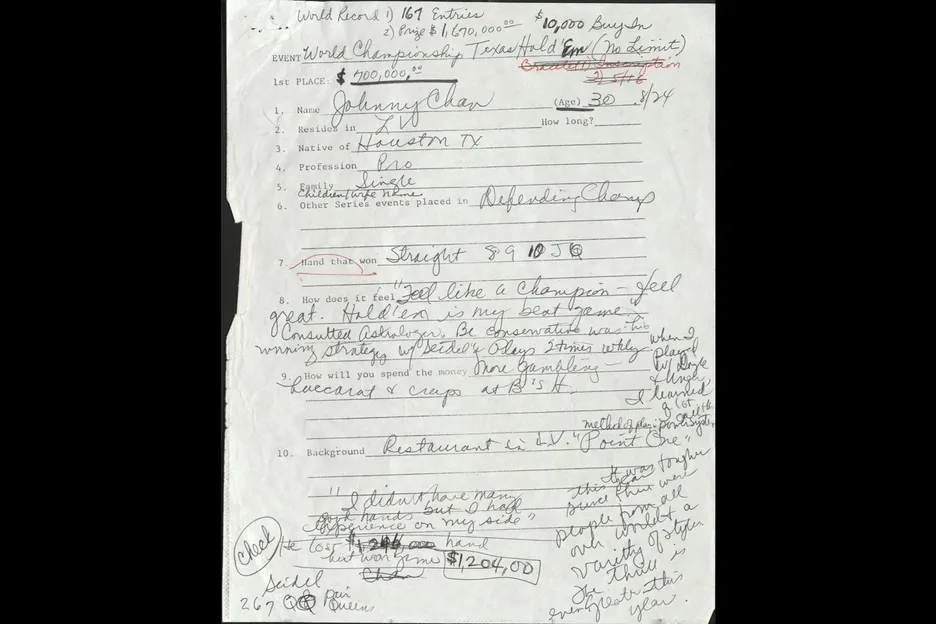 World Record 1) 167 Entries
2) Prize $1,670,000.00 $10,000 Buy In
EVENT World Championship Texas Hold'Em (No Limit)
Bracelet) Inscription
2) 5/16
1st PLACE: $700,000.00
1. Name Johnny Chan (Age) 30 8/24
2. Resides in LV How long?
3. Native of Houston TX
4. Profession Pro
5. Family Single
Children/Wife Name
6. Other Series events placed in Defending Champ
7. Hand that won Straight 8 9 10 J Q
8. How does it feel "Feel like a Champion - feel
great. Hold'em is my best game."
Consulted Astrologer. Be conservative was his
winning strategy w/ Seidel & Plays 2 times wkly
9. How will you spend the money More Gambling -
baccarat & craps at B's H.
when I
played
w/ Doyle
& Unger
I learned
a lot
method of play: point system
10. Background Restaurant in L.V. "Point One"
"I didn't have many
good hands but I had
experience on my side"
It was tougher
this year
since there were
people from all
over world & a
variety of styles.
The thrill is
even greater this
year.
check
He lost hand
but won game $1,204,00
Chan
Seidel
2 6 7 Q Q Pair
Queens